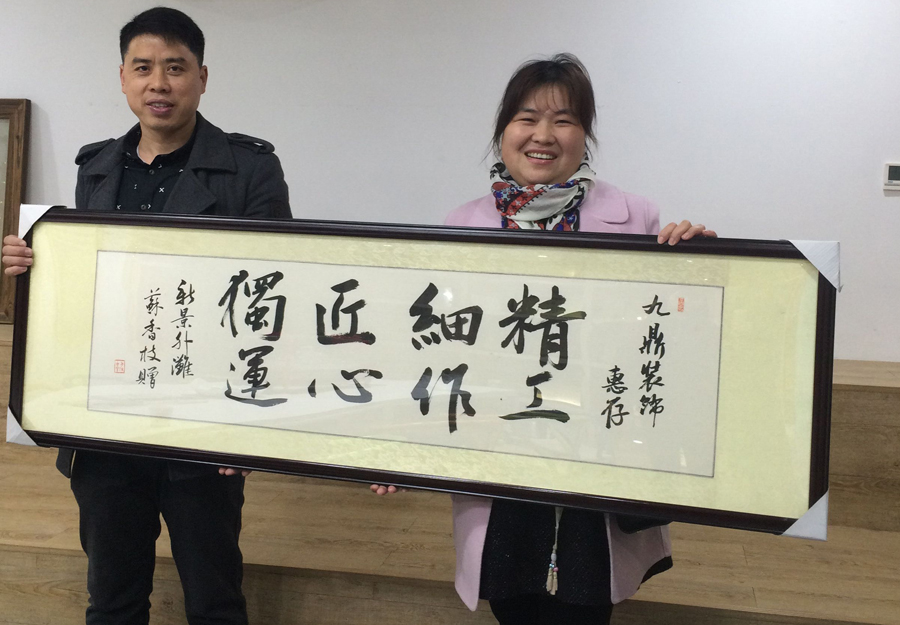 九鼎装饰
惠存
精工
细作
匠心
獨運
新景外滩
蘇香枝贈